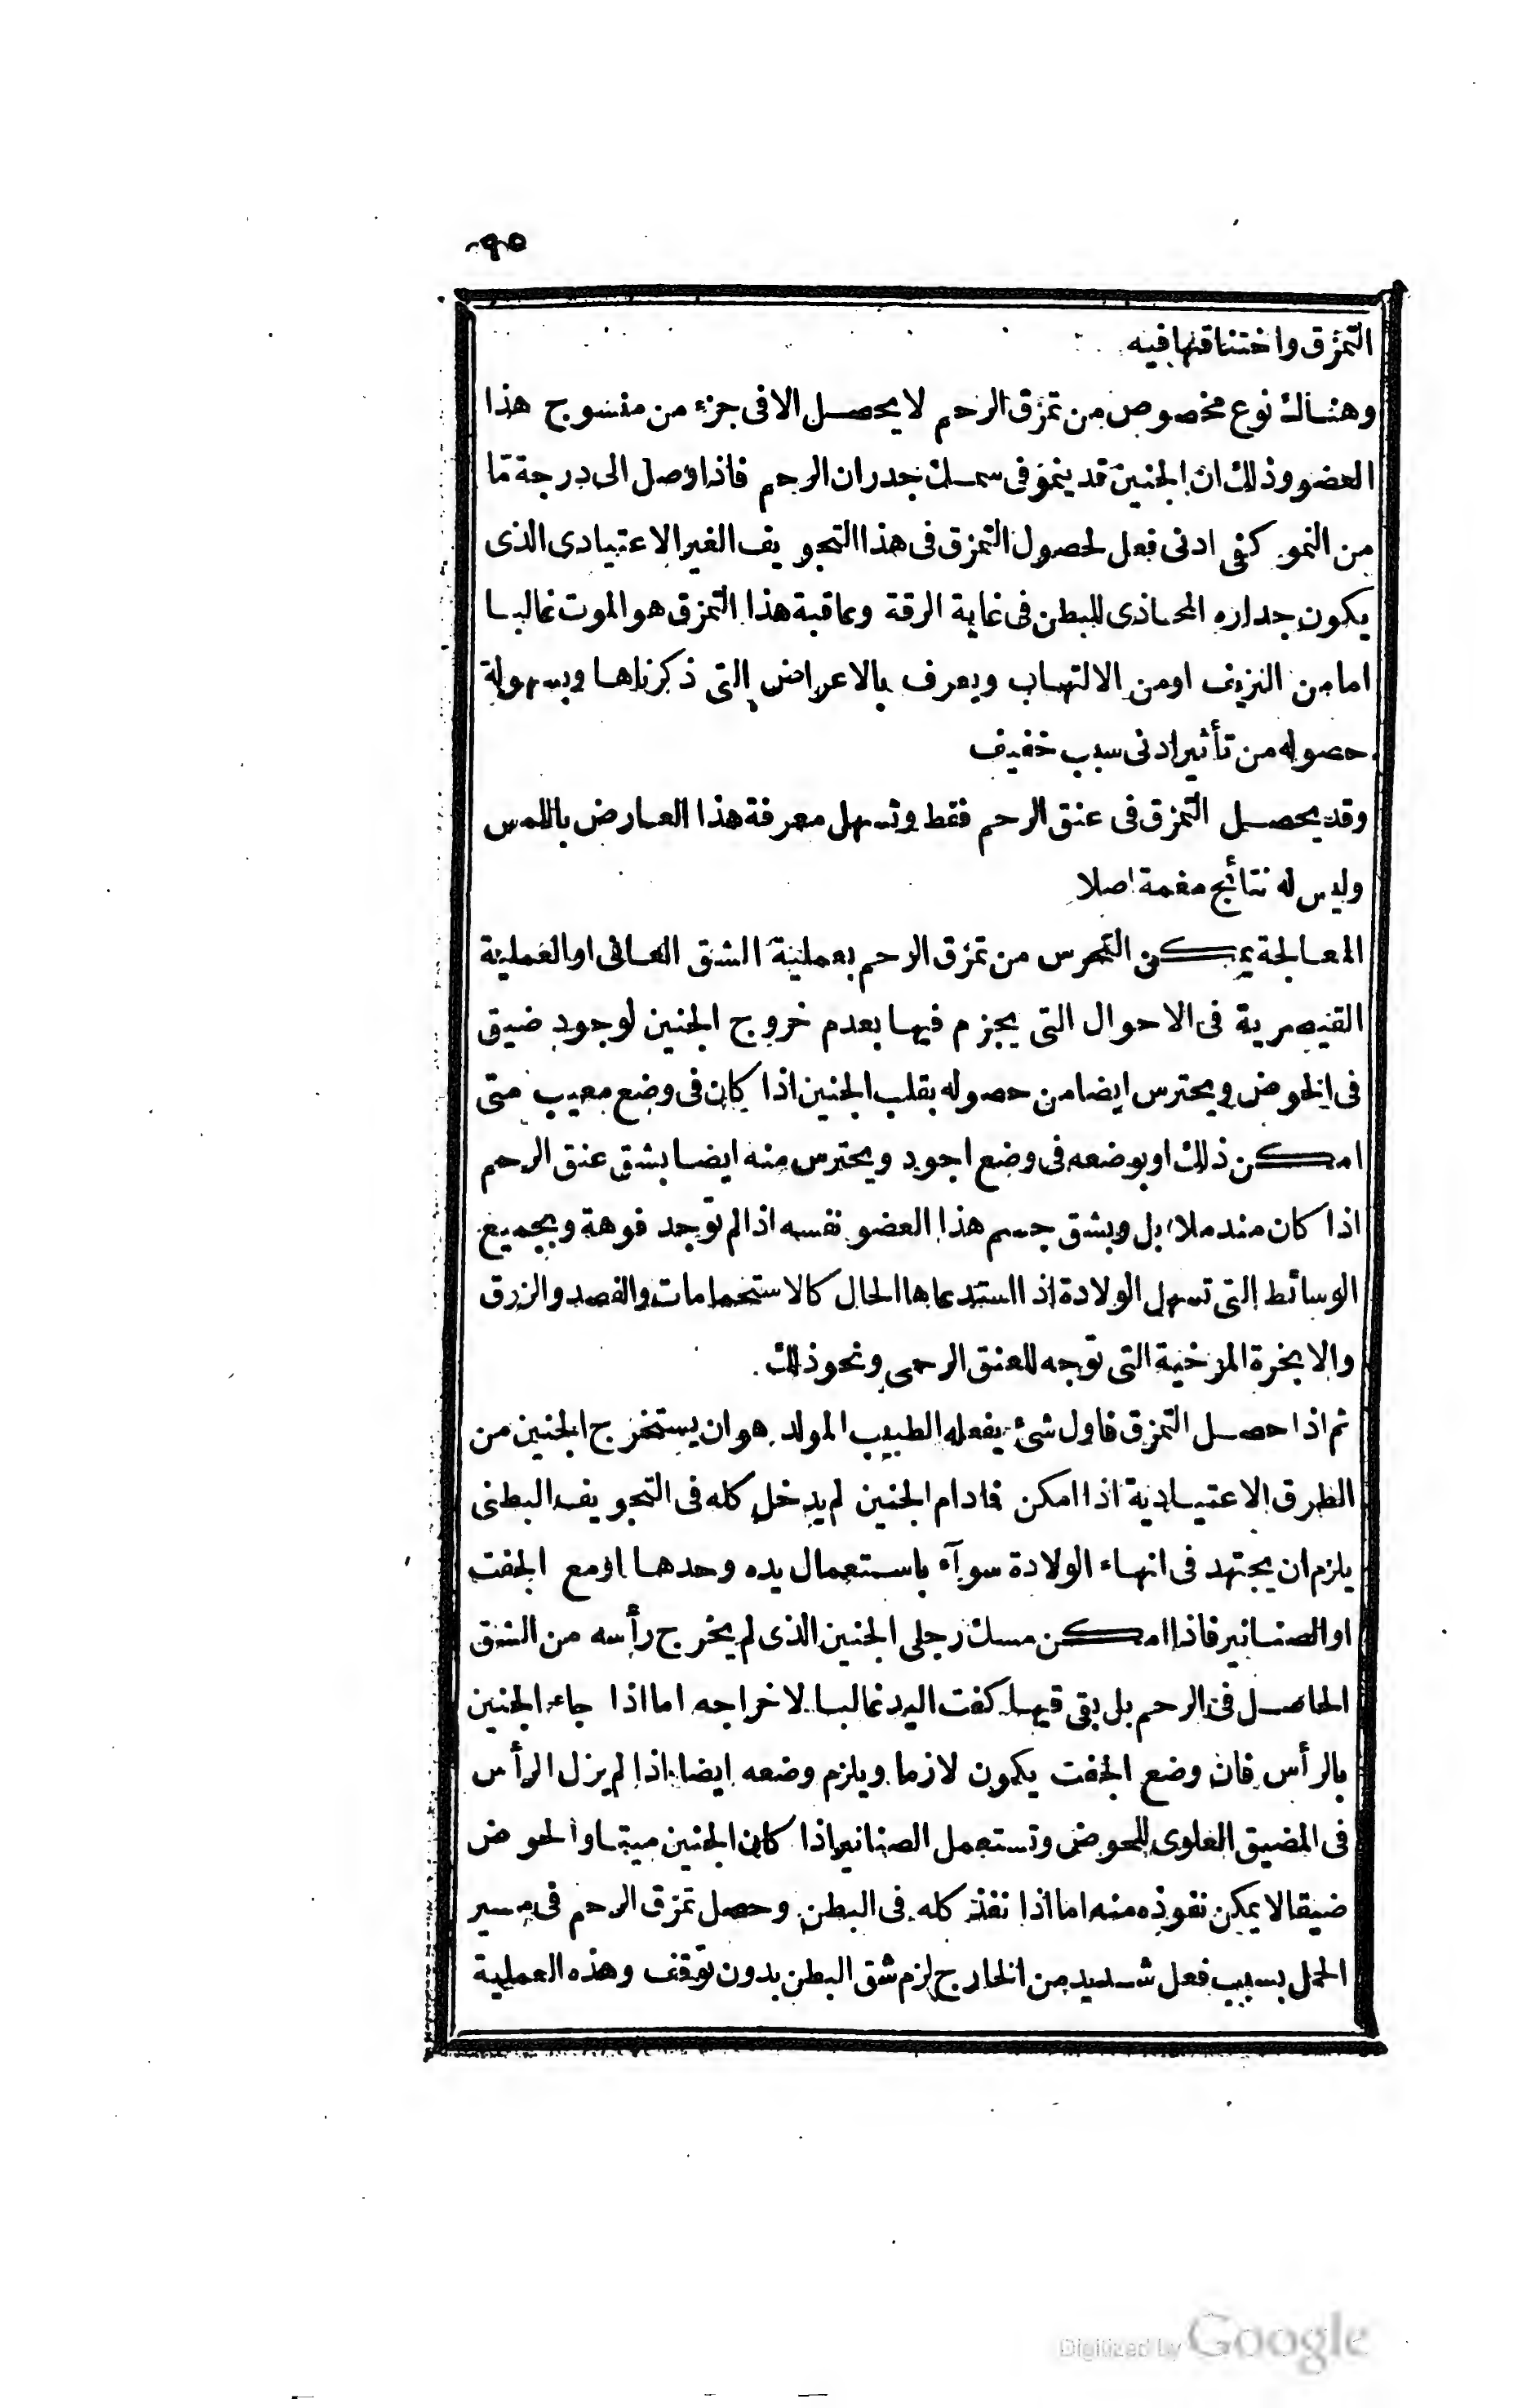 ٩٥
التمزق واختناقها فيه
وهنالك نوع مخصوص من تمزق الرحم لا يحصل الا فى جزء من منسوج هذا
العضو وذلك ان الجنين قد ينمو فى سمك جدران الرحم فاذا وصل الى درجة تما
من النمو كفى ادنى فعل لحصول التمزق فى هذا التجويف الغير الاعتيادى الذى
يكون جداره المحاذى للبطن فى غاية الرقة وعاقبة هذا التمزق هو الموت غالبا
اما من النزيف او من الالتهاب ويعرف بالاعراض التى ذكرناها وبسهولة
حصوله من تأثير ادنى سبب خفيف
وقد يحصل التمزق فى عنق الرحم فقط وتسهل معرفة هذا العارض باللمس
وليس له نتائج مغمة اصلا
المعالجة يمكن التحرس من تمزق الرحم بعملية الشق العانى او العملية
القيصرية فى الاحوال التى يجزم فيها بعدم خروج الجنين لوجود ضيق
فى الحوض ويحترس ايضا من حصوله بقلب الجنين اذا كان فى وضع معيب متى
امكن ذلك او بوضعه فى وضع اجود ويحترس منه ايضا بشق عنق الرحم
اذا كان مندملا بل وبشق جسم هذا العضو نفسه اذا لم توجد فوهة وبجميع
الوسائط التى تسهل الولادة اذا استدعاها الحال كالاستحمامات والفصد والزرق
والابخرة المرخية التى توجه للعنق الرحمى ونحو ذلك.
ثم اذا حصل التمزق فاول شئ يفعله الطبيب المولد هو ان يستخرج الجنين من
الطرق الاعتيادية اذا امكن فادام الجنين لم يدخل كله فى التجويف البطنى
يلزم ان يجتهد فى انهاء الولادة سوآء باستعمال يده وحدها او مع الجفت
او الصنانير فاذا امكن مسك رجلى الجنين الذى لم يخرج رأسه من الشق
الحاصل فى الرحم بل بقى فيها كفت اليد غالبا لاخراجه اما اذا جاء الجنين
بالرأس فان وضع الجفت يكون لازما ويلزم وضعه ايضا اذا لم يزل الرأس
فى المضيق العلوى للحوض وتستعمل الصنانير اذا كان الجنين ميتا والحوض
ضيقا لا يمكن نفوذه منه اما اذا نفذ كله فى البطن وحصل تمزق الرحم فى مسير
الحمل بسبب فعل شديد من الخارج لزم شق البطن بدون توقف وهذه العملية
Digitized by Google